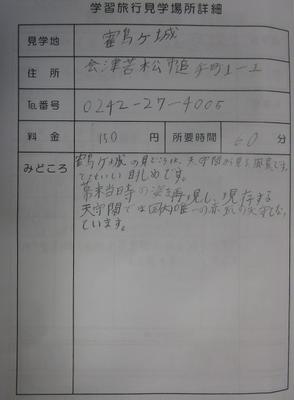 学習旅行見学場所詳細
見学地 鶴ヶ城
住所 会津若松市追手町1-1
℡番号 0242-27-4005
料金 150 円 所要時間 60 分
みどころ 鶴ヶ城の見どころは、天守閣から見る風景です。
とてもいい眺めです。
幕末当時の姿を再現し、現存する
天守閣では国内唯一の赤瓦の天守となっ
ています。